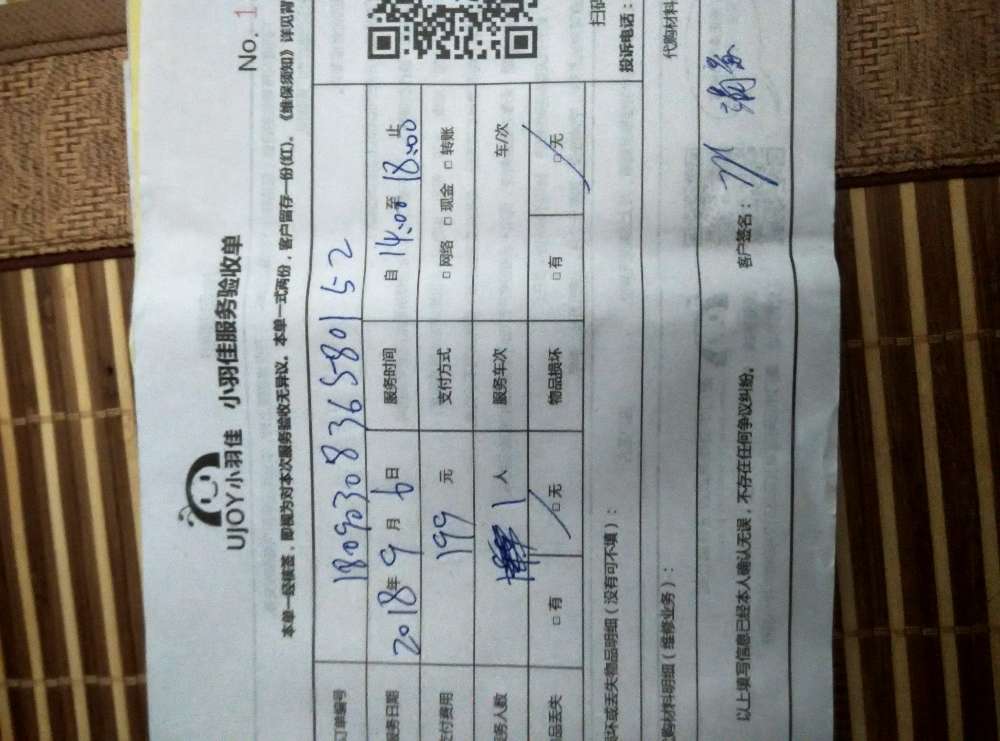 No. 1
UJOY小羽佳 小羽佳服务验收单
本单一经签签，即视为对本次服务验收无异议。本单一式两份，客户留存一份(红)。《维保须知》详见背
订单编号 180903083658015 2
服务日期 2018年9月6日 服务时间 自 14:00至 18:00止
支付费用 199 元 支付方式 □ 网络 □ 现金 □ 转账
服务人数 1 人 服务车次 车/次
物品丢失 □ 有 □ 无 物品损坏 □ 有 □ 无
损坏或丢失物品明细（没有可不填）：
扫码
投诉电话：
代购材料明细（维修业务）： 代购材料
以上填写信息已经本人确认无误，不存在任何争议纠纷。 客户签名：